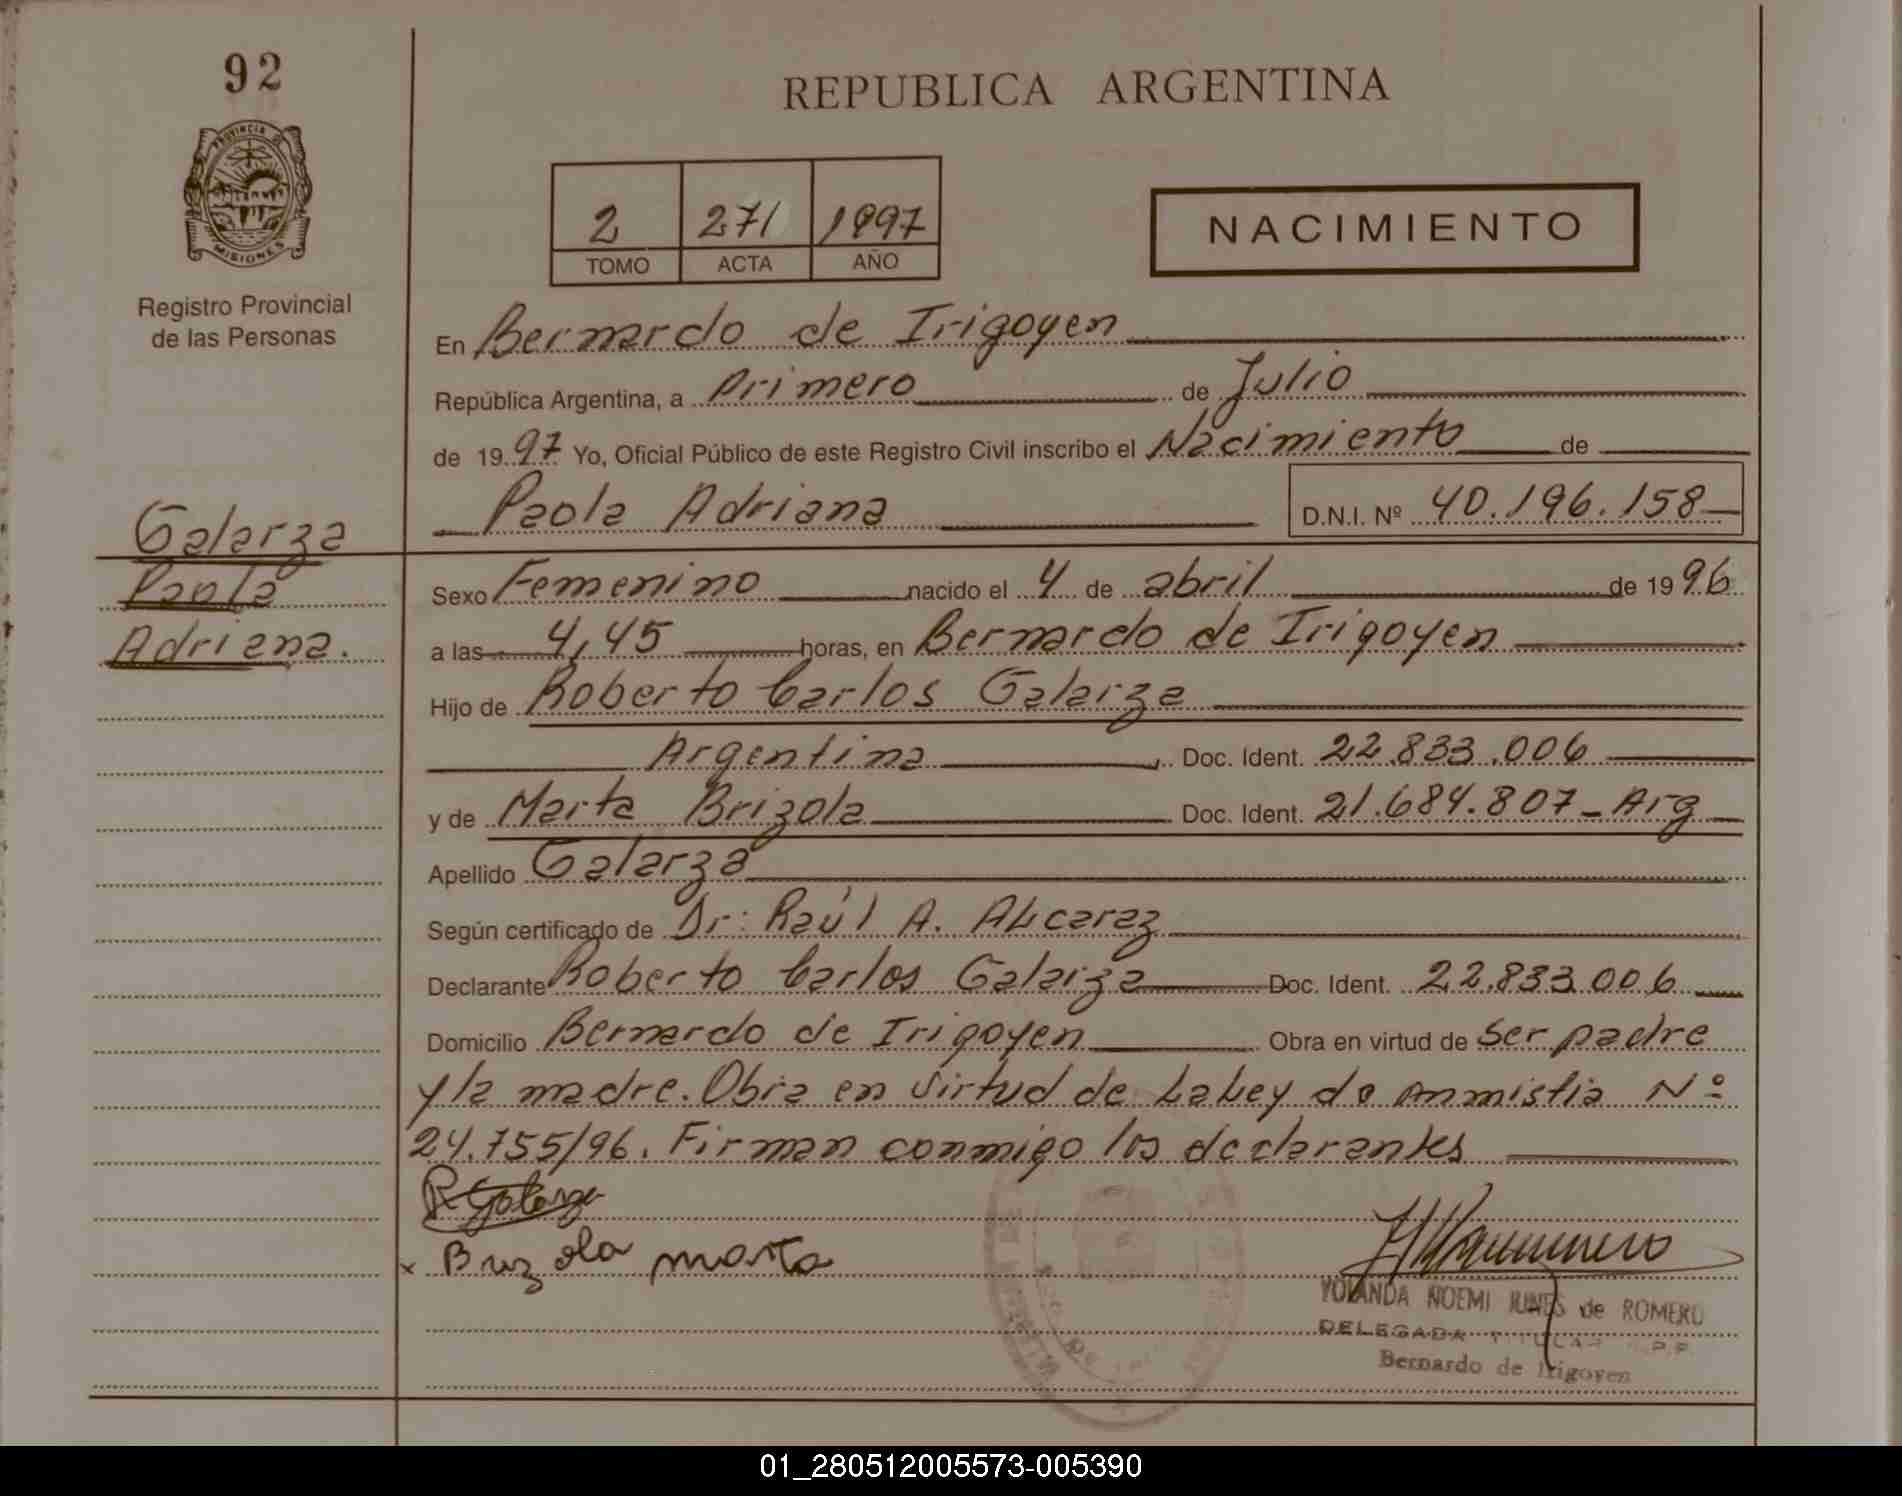 92
REPUBLICA ARGENTINA
PROVINCIA DE
MISIONES
Registro Provincial
de las Personas
2 271 1997
TOMO ACTA AÑO
NACIMIENTO
En Bernardo de Irigoyen
República Argentina, a Primero de Julio
de 1997 Yo, Oficial Público de este Registro Civil inscribo el Nacimiento de
Paola Adriana D.N.I. Nº 40.196.158
Galarza
Paola
Adriana.
Sexo Femenino nacido el 4 de abril de 1996
a las 4,45 horas, en Bernardo de Irigoyen
Hijo de Roberto Carlos Galarza
Argentina Doc. Ident. 22.833.006
y de Marta Brizola Doc. Ident. 21.684.807-Arg
Apellido Galarza
Según certificado de Dr: Raúl A. Alcaraz
Declarante Roberto Carlos Galarza Doc. Ident. 22.833.006
Domicilio Bernardo de Irigoyen Obra en virtud de ser padre
y la madre. Obra en virtud de La Ley de Ammistia Nº
24.755/96. Firman conmigo los declarantes
R Galarza
x Brizola marta
YOLANDA NOEMI de ROMERO
DELEGADA TITULAR
Bernardo de Irigoyen
01_280512005573-005390